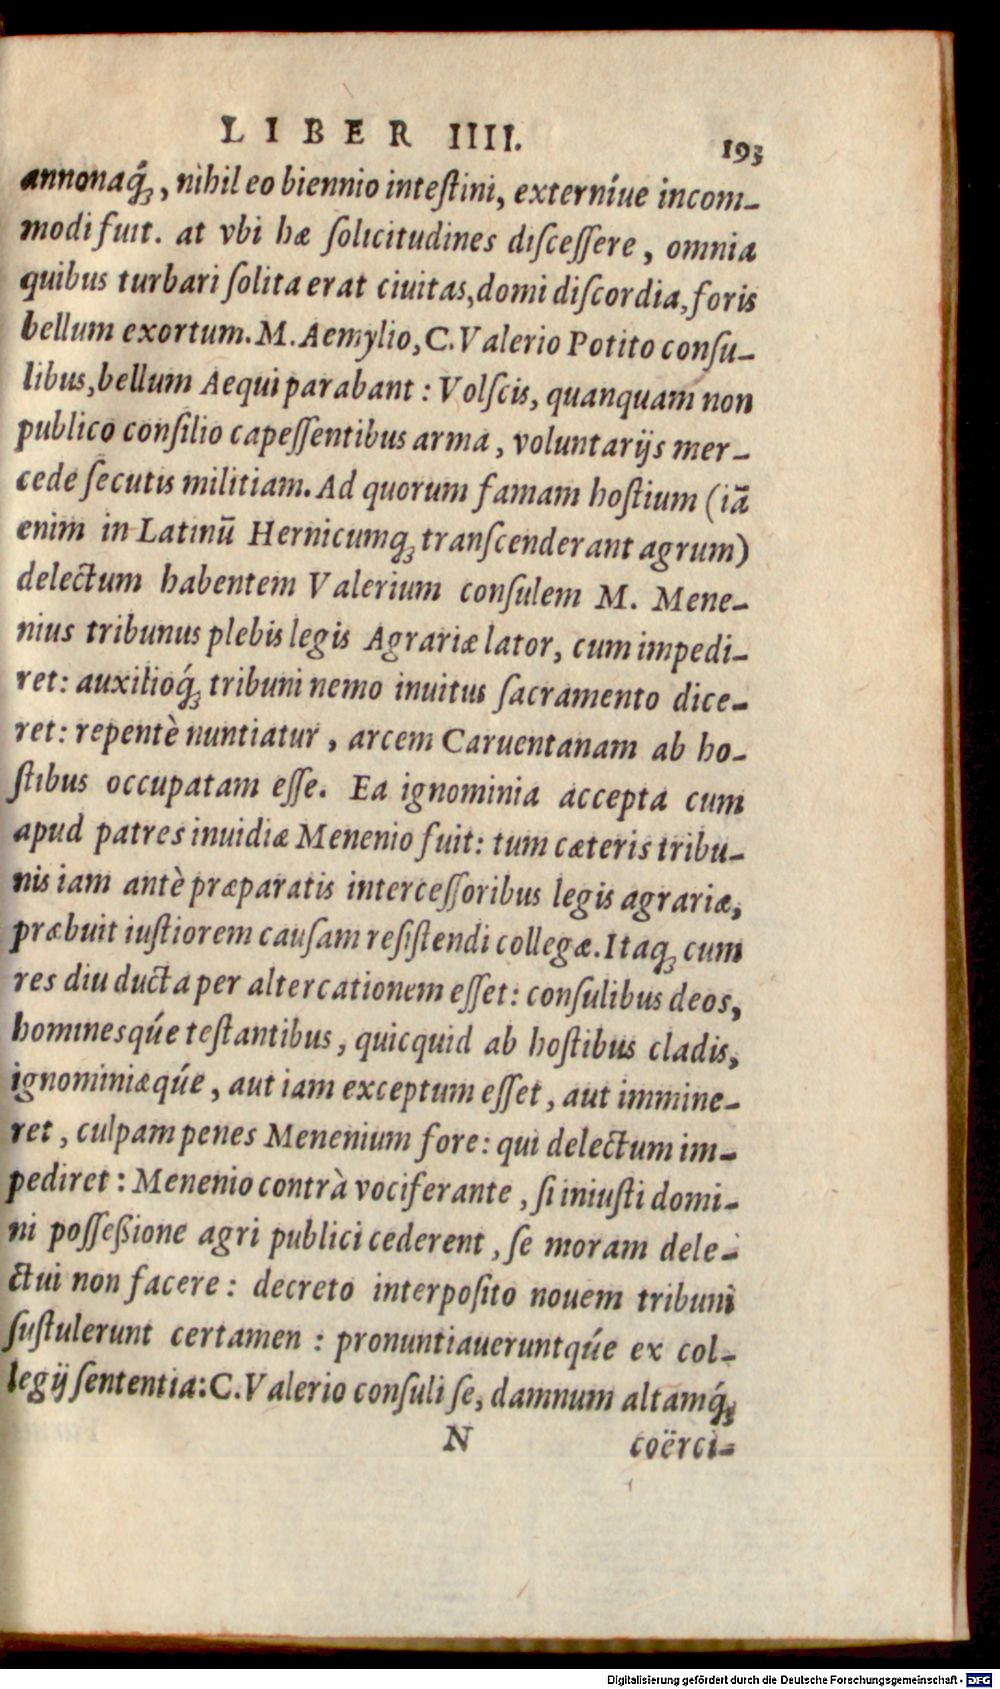 LIBER IIII. 193
annonaq́;, nihil eo biennio inteſtini, externíue incom-
modi fuit. at vbi hæ ſolicitudines diſceſſere, omnia
quibus turbari ſolita erat ciuitas, domi diſcordia, foris
bellum exortum. M. Aemylio, C. Valerio Potito conſu-
libus, bellum Aequi parabant: Volſcis, quanquam non
publico conſilio capeſſentibus arma, voluntarijs mer-
cede ſecutis militiam. Ad quorum famam hoſtium (iã
enim in Latinũ Hernicumq; tranſcenderant agrum)
delectum habentem Valerium conſulem M. Mene-
nius tribunus plebis legis Agrariæ lator, cum impedi-
ret: auxilioq́; tribuni nemo inuitus ſacramento dice-
ret: repentè nuntiatur, arcem Caruentanam ab ho-
ſtibus occupatam eſſe. Ea ignominia accepta cum
apud patres inuidiæ Menenio fuit: tum cæteris tribu-
nis iam antè præparatis interceſſoribus legis agrariæ,
præbuit iuſtiorem cauſam reſiſtendi collegæ. Itaq; cum
res diu ducta per altercationem eſſet: conſulibus deos,
hominesq́ue teſtantibus, quicquid ab hoſtibus cladis,
ignominiæq́ue, aut iam exceptum eſſet, aut immine-
ret, culpam penes Menenium fore: qui delectum im-
pediret: Menenio contrà vociferante, ſi iniuſti domi-
ni poſſeßione agri publici cederent, ſe moram dele-
ctui non facere: decreto interpoſito nouem tribuni
ſuſtulerunt certamen: pronuntiaueruntq́ue ex col-
legij ſententia: C. Valerio conſuli ſe, damnum altamq́;
N coërci-
Digitalisierung gefördert durch die Deutsche Forschungsgemeinschaft - DFG